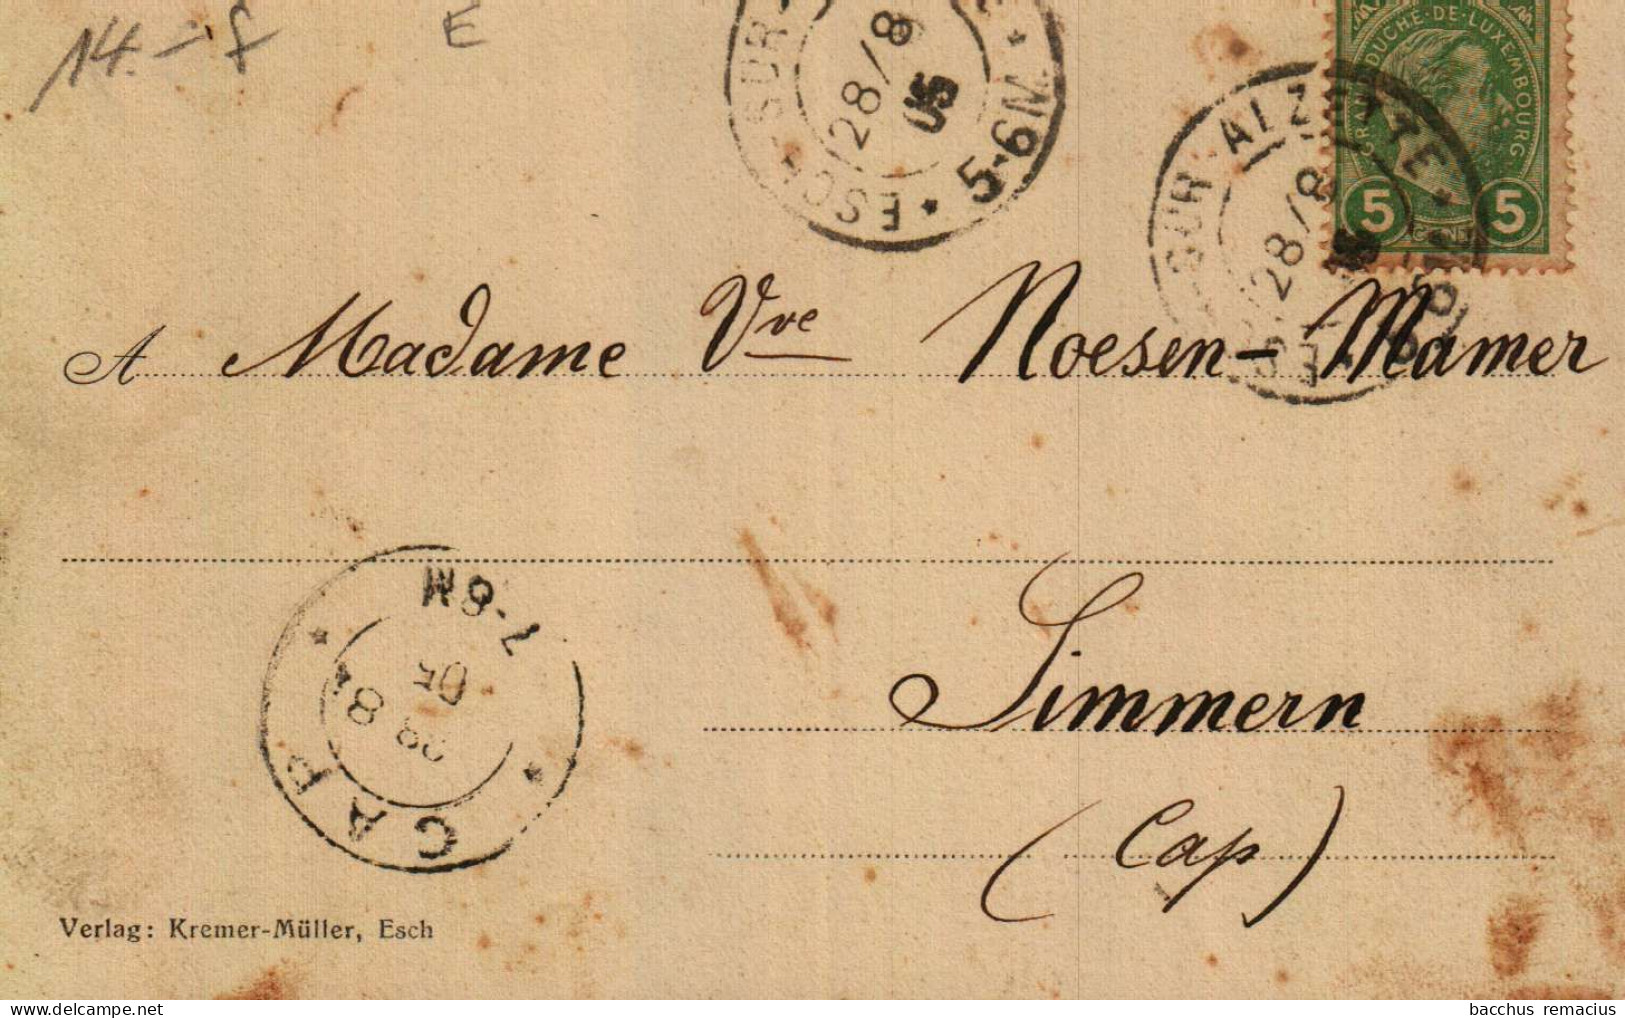 14.- f E
ESCH-SUR- 28/8 05 * 5-6M *
GRAND DUCHÉ·DE·LUXEMBOURG
5 CENT. 5
SUR ALZETTE * 28/8
A Madame Vve Noesen-Mamer
7-8M
05
29 8
CAP
Simmern
(Cap)
Verlag: Kremer-Müller, Esch
bacchus remacius